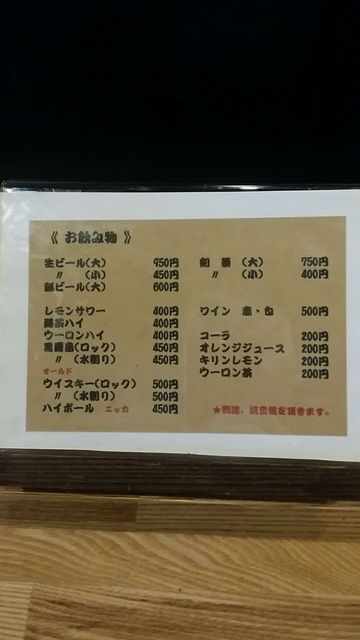 《 お飲み物 》
生ビール(大) 750円
〃 (小) 450円
瓶ビール(大) 600円
レモンサワー 400円
緑茶ハイ 400円
ウーロンハイ 400円
黒霧島(ロック) 450円
〃 (水割り) 450円
オールド
ウイスキー(ロック) 500円
〃 (水割り) 500円
ハイボール ニッカ 450円
(大) 750円
〃 (小) 400円
ワイン 赤・白 500円
コーラ 200円
オレンジジュース 200円
キリンレモン 200円
ウーロン茶 200円
★別途、消費税を頂きます。